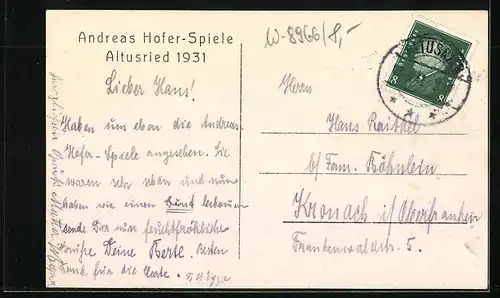 Andreas Hofer-Spiele
Altusried 1931
W-8966/8,-
8 8
Lieber Hans!
Haben uns eben die Andreas
Hofer-Spiele angesehen. Sie
waren sehr schön und nun
haben wir einen Durst
sende Dir nun feuchtfröhliche
Grüße Deine Berte. Besten
Dank für die Karte.
Herrn
Hans
b/ Fam. Köhnlein
Kronach i/ Oberfranken
Frankenwaldstr. 5.